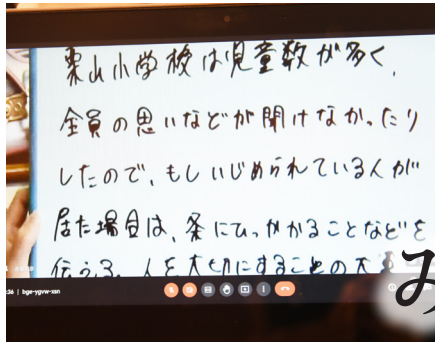 栗山小学校は児童数が多く、
全員の思いなどが聞けなかったり
したので、もしいじめられている人が
居た場合は、条にひっかかることなどを
伝える、人を大切にすることの大
:36 | bge-ygvw-xsn
み